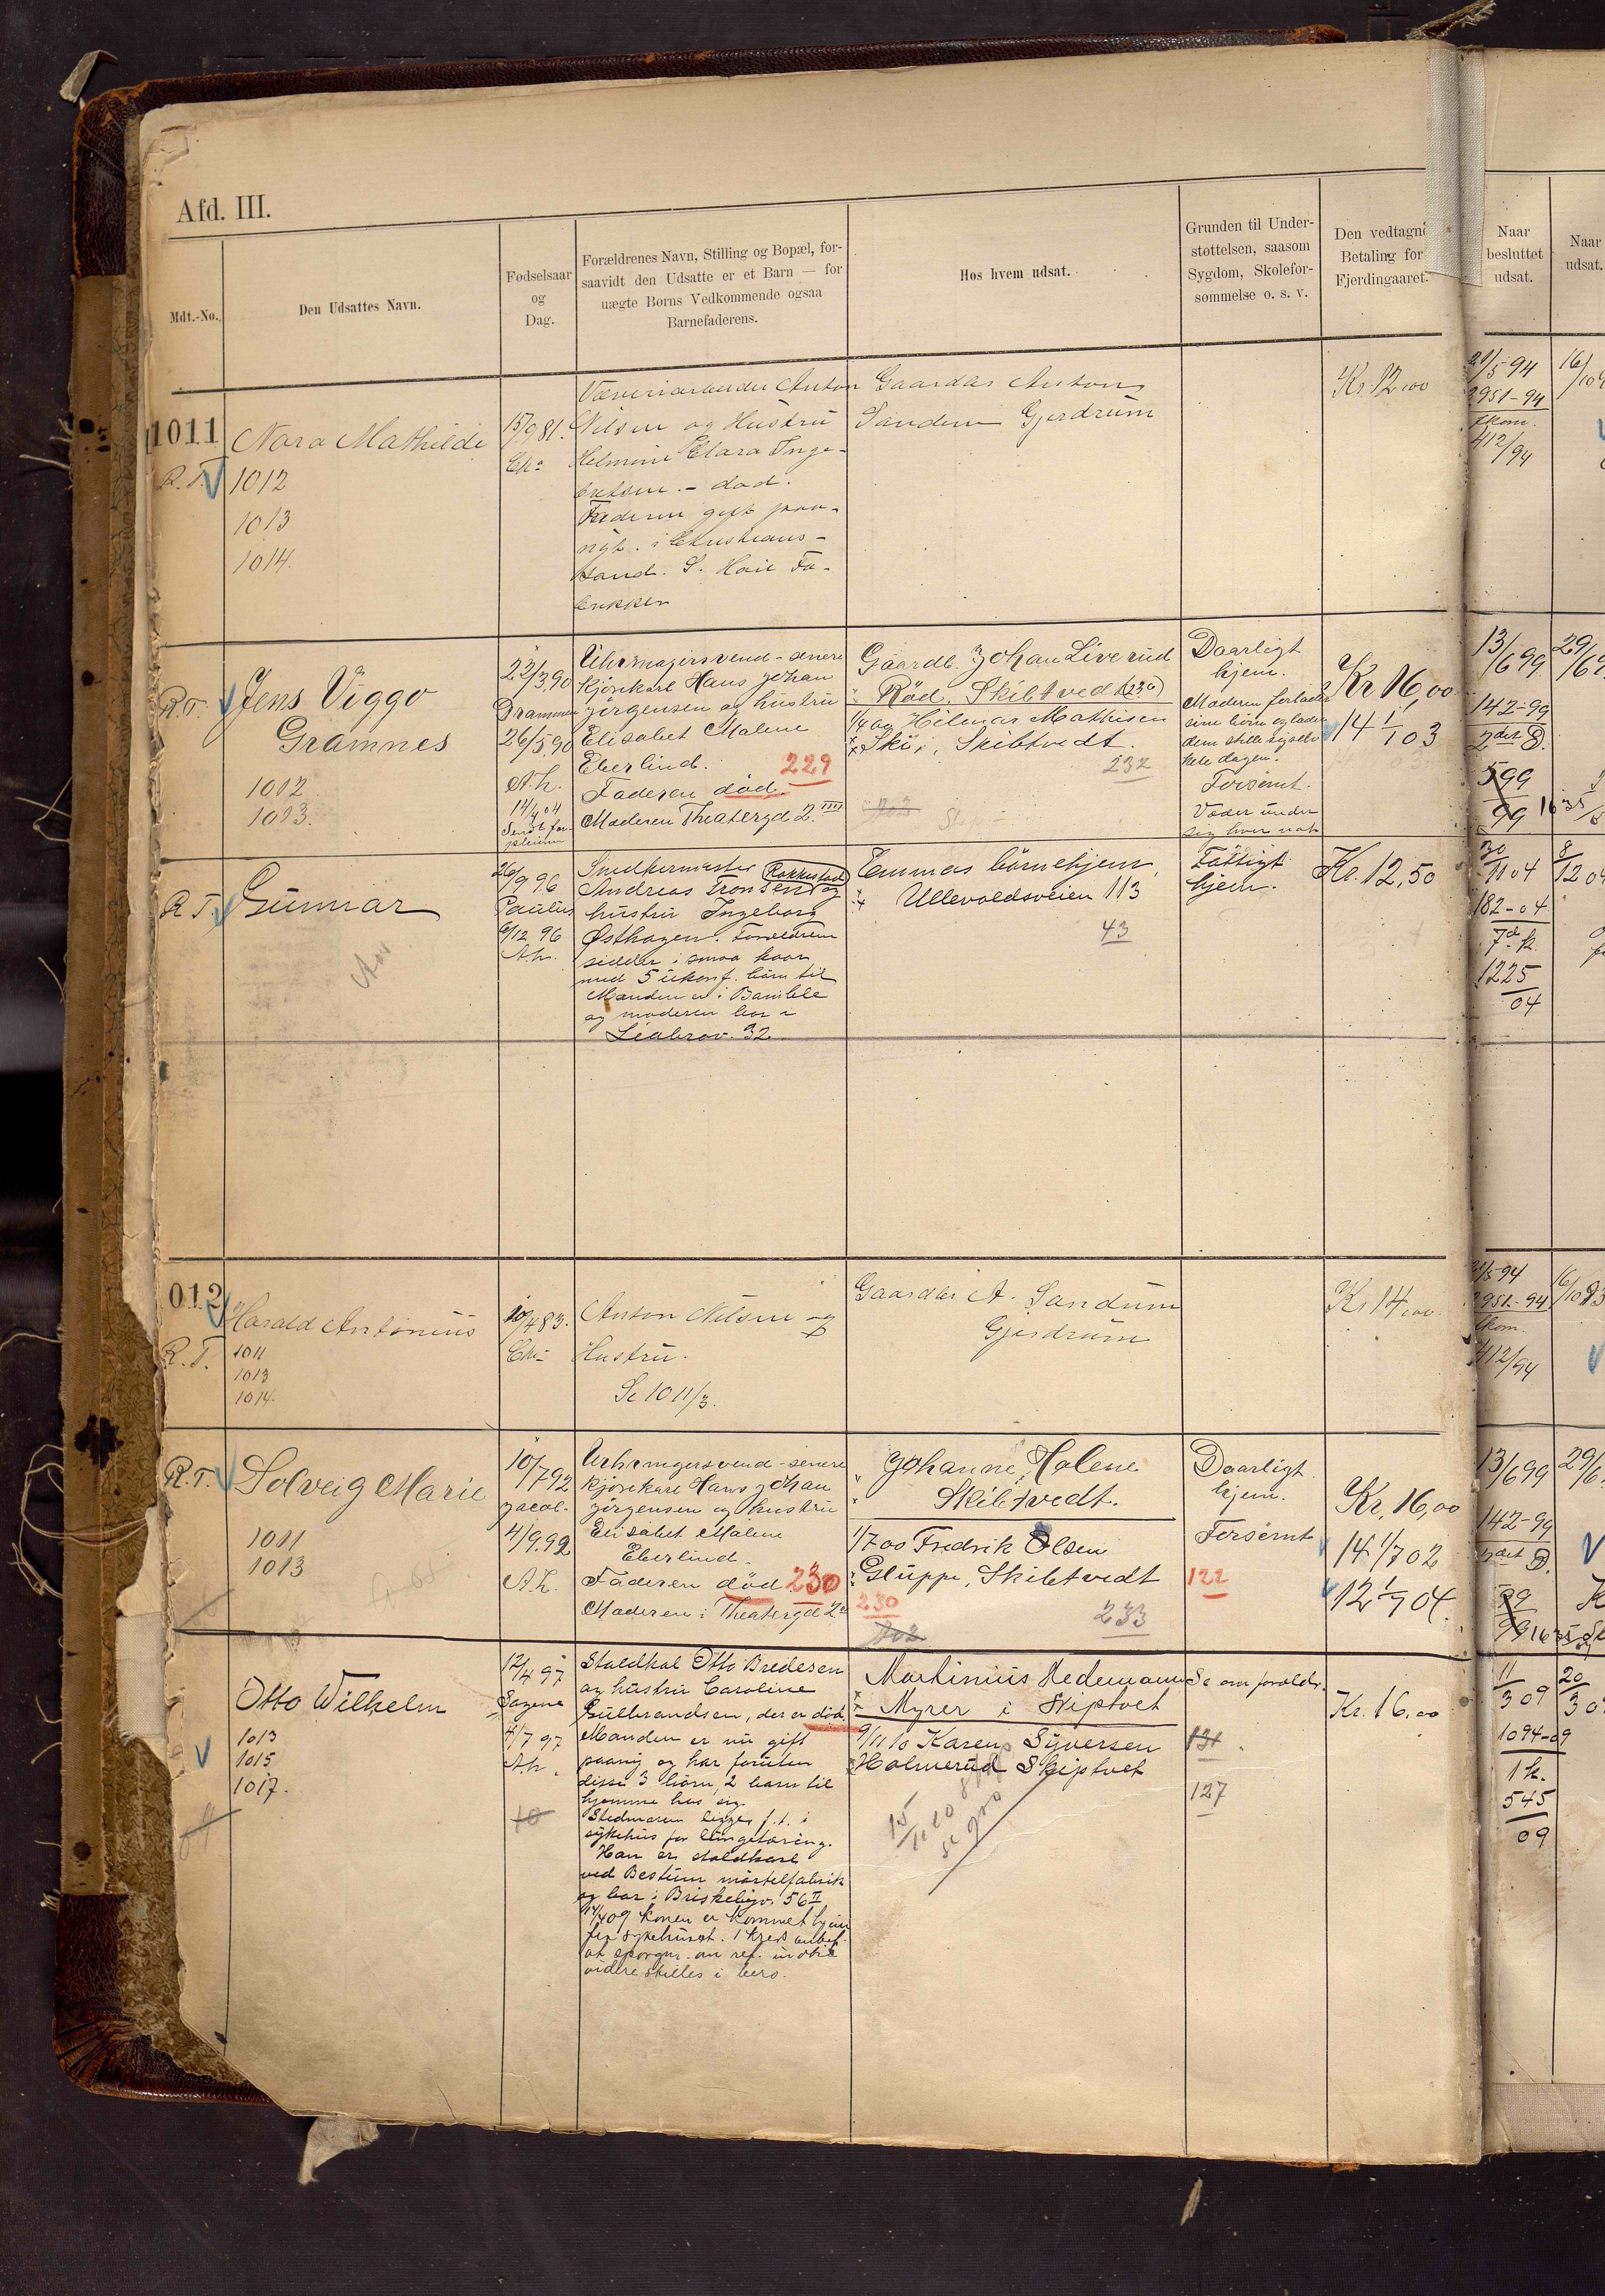 Afd. III.
Mdt.-No.
Den Udsattes Navn.
Fødselsaar
og
Dag.
Forældrenes Navn, Stilling og Bopæl, for-
saavidt den Udsatte er et Barn — for
uægte Børns Vedkommende ogsaa
Barnefaderens.
Hos hvem udsat.
Grunden til Under-
støttelsen, saasom
Sygdom, Skolefor-
sømmelse o. s. v.
Den vedtagne
Betaling for
Fjerdingaaret.
Naar
besluttet
udsat.
Naar
udsat.
1011
R. T.
Nora Mathilde
1012
1013
1014.
15/9 81.
Chr.
Væveriarbeider Anton
Nilsen og Hustru
Helmine Clara Inge-
bretsen. - død.
Faderen gift paa-
nyt. i Christians-
sand. S. Høie Fa-
brikker
Gaardbr Anton
Sandum Gjerdrum
Kr. 12,00
21/5-94
2951-94
412/94
R.T.
Jens Viggo
Gramnes
1012
1013.
22/3 90
Drammen
26/5 90
A.h.
14/4 04
Uhrmagersvend - senere
kjørekarl Hans Johan
Jørgensen og hustru
Elisabet Malene
Eberlind.
229
Faderen død.
Moderen Theatergd 2 IIII
Gaardb. Johan Liverud
Rød. Skibtvedt (230)
Hilmar Mathisen
Ski, Skibtvedt.
232
Daarligt
hjem.
Moderen forlader
sine børn og lader
dem stille sig selv
hele dagen.
Forsømt.
Væder under
sig hver nat
Kr 16,00
14 1/1 03
13/6 99
142-99
2det D.
599
99
29/6
R T.
Gunnar
26/9 96
Paulus
6/12 96
A.h.
Snedkermester Rakkestad
Andreas Fronsen og
hustru Ingeborg
Østhagen. Forældrene
sidder i smaa kaar
med 5 ukonf. børn til
Manden er i Bamble
og moderen bor i
Liabrov. 32.
Emmas børnehjem,
Ullevoldsveien 113
43
Fattigt
hjem.
Kr. 12,50
30/11 04
182-04
7de k.
1225
04
8/12 04
012
R. T.
Harald Antonius
1011
1013
1014.
10/4 83.
Chr.
Anton Nilsen og
Hustru.
Se 1011/3.
Gaardbr A. Sandum
Gjerdrum
Kr 14,00.
21/5-94
2951-94
412/94
R.T.
Solveig Marie
1011
1013
10/7 92
Jacob.
4/9.92
A.h.
Uhrmagersvend - senere
kjørekarl Hans Johan
Jørgensen og hustru
Elisabet Malene
Eberlind.
Faderen død 230
Moderen i Theatergd 2
Johanne Holene
Skibtvedt.
1/7 00 Fredrik Olsen
Gluppe, Skibtvedt
230
233
Daarligt
hjem.
Forsømt
122
Kr, 16,00
14 1/7 02
12 1/7 04.
13/6 99
142-99
2det D.
99
29/6
Otto Wilhelm
1013
1015
1017.
12/4 97
Sagene
4/7 97
A.h.
Staldkal Otto Bredesen
og hustru Caroline
Gulbrandsen, der er død.
Manden er nu gift
paany og har foruten
disse 3 børn, 2 barn til
hjemme hos sig.
Stedmoren ligger f.t. i
sykehus for lungetæring.
Han er staldkarl
ved Bestum mørtelfabrik
og bor i Briskebyv. 56 II
14/4 09 konen er kommet hjem
fra sykehuset. 1 kreds anbef.
at spørgm. om ref.
videre stilles i bero.
Martinius Hedemann
Myrer i Skiptvet
9/11 10 Karen Syversen
Holmerud Skiptvet
Se om foreldr.
131
127
Kr. 16.00
11/3 09
1094-09
1 k.
545
09
20/3